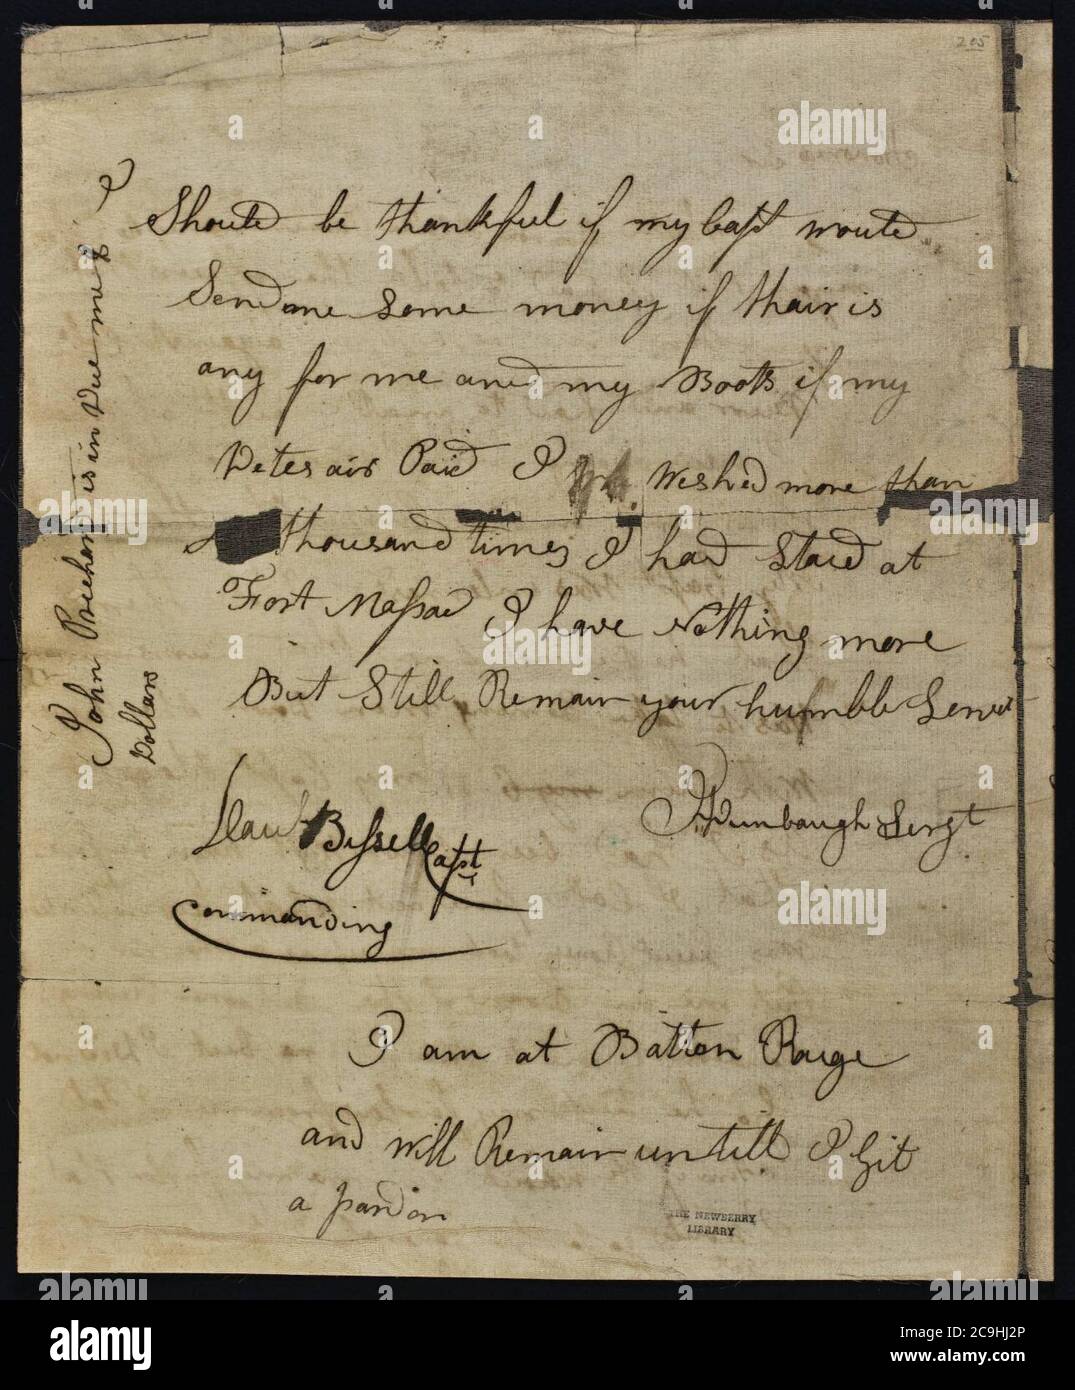 205
I
Should be thankful if my Capt would
Send me some money if thair is
any for me and my Boots if my
Detes air Paid I Wished more than
a thousand times I had Staid at
Fort Massac I have Nothing more
But Still Remain your humble Servt
Dumbaugh Sergt
Bissell Capt
Commanding
I am at Batton Rouge
and will Remain untill I Git
a pardon
John is in Due me 8
Dollars
THE NEWBERRY
LIBRARY
alamy
Image ID: 2C9HJ2P
www.alamy.com